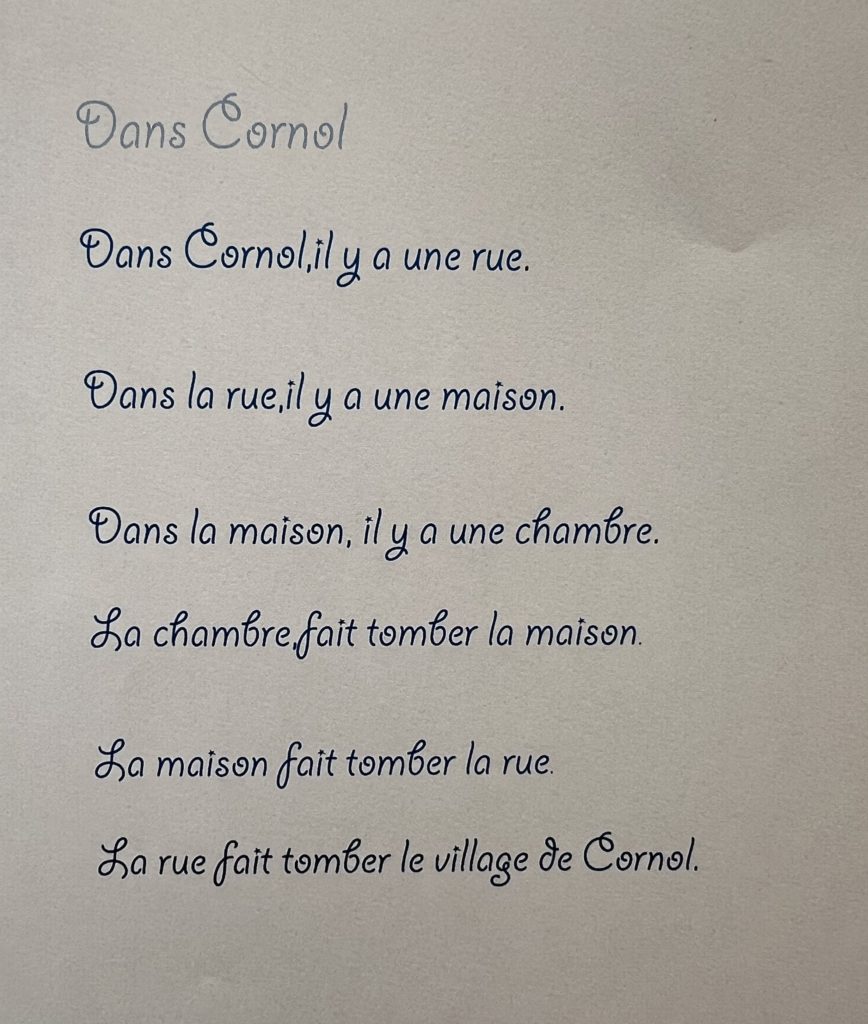 Dans Cornol
Dans Cornol,il y a une rue.
Dans la rue,il y a une maison.
Dans la maison, il y a une chambre.
La chambre,fait tomber la maison.
La maison fait tomber la rue.
La rue fait tomber le village de Cornol.